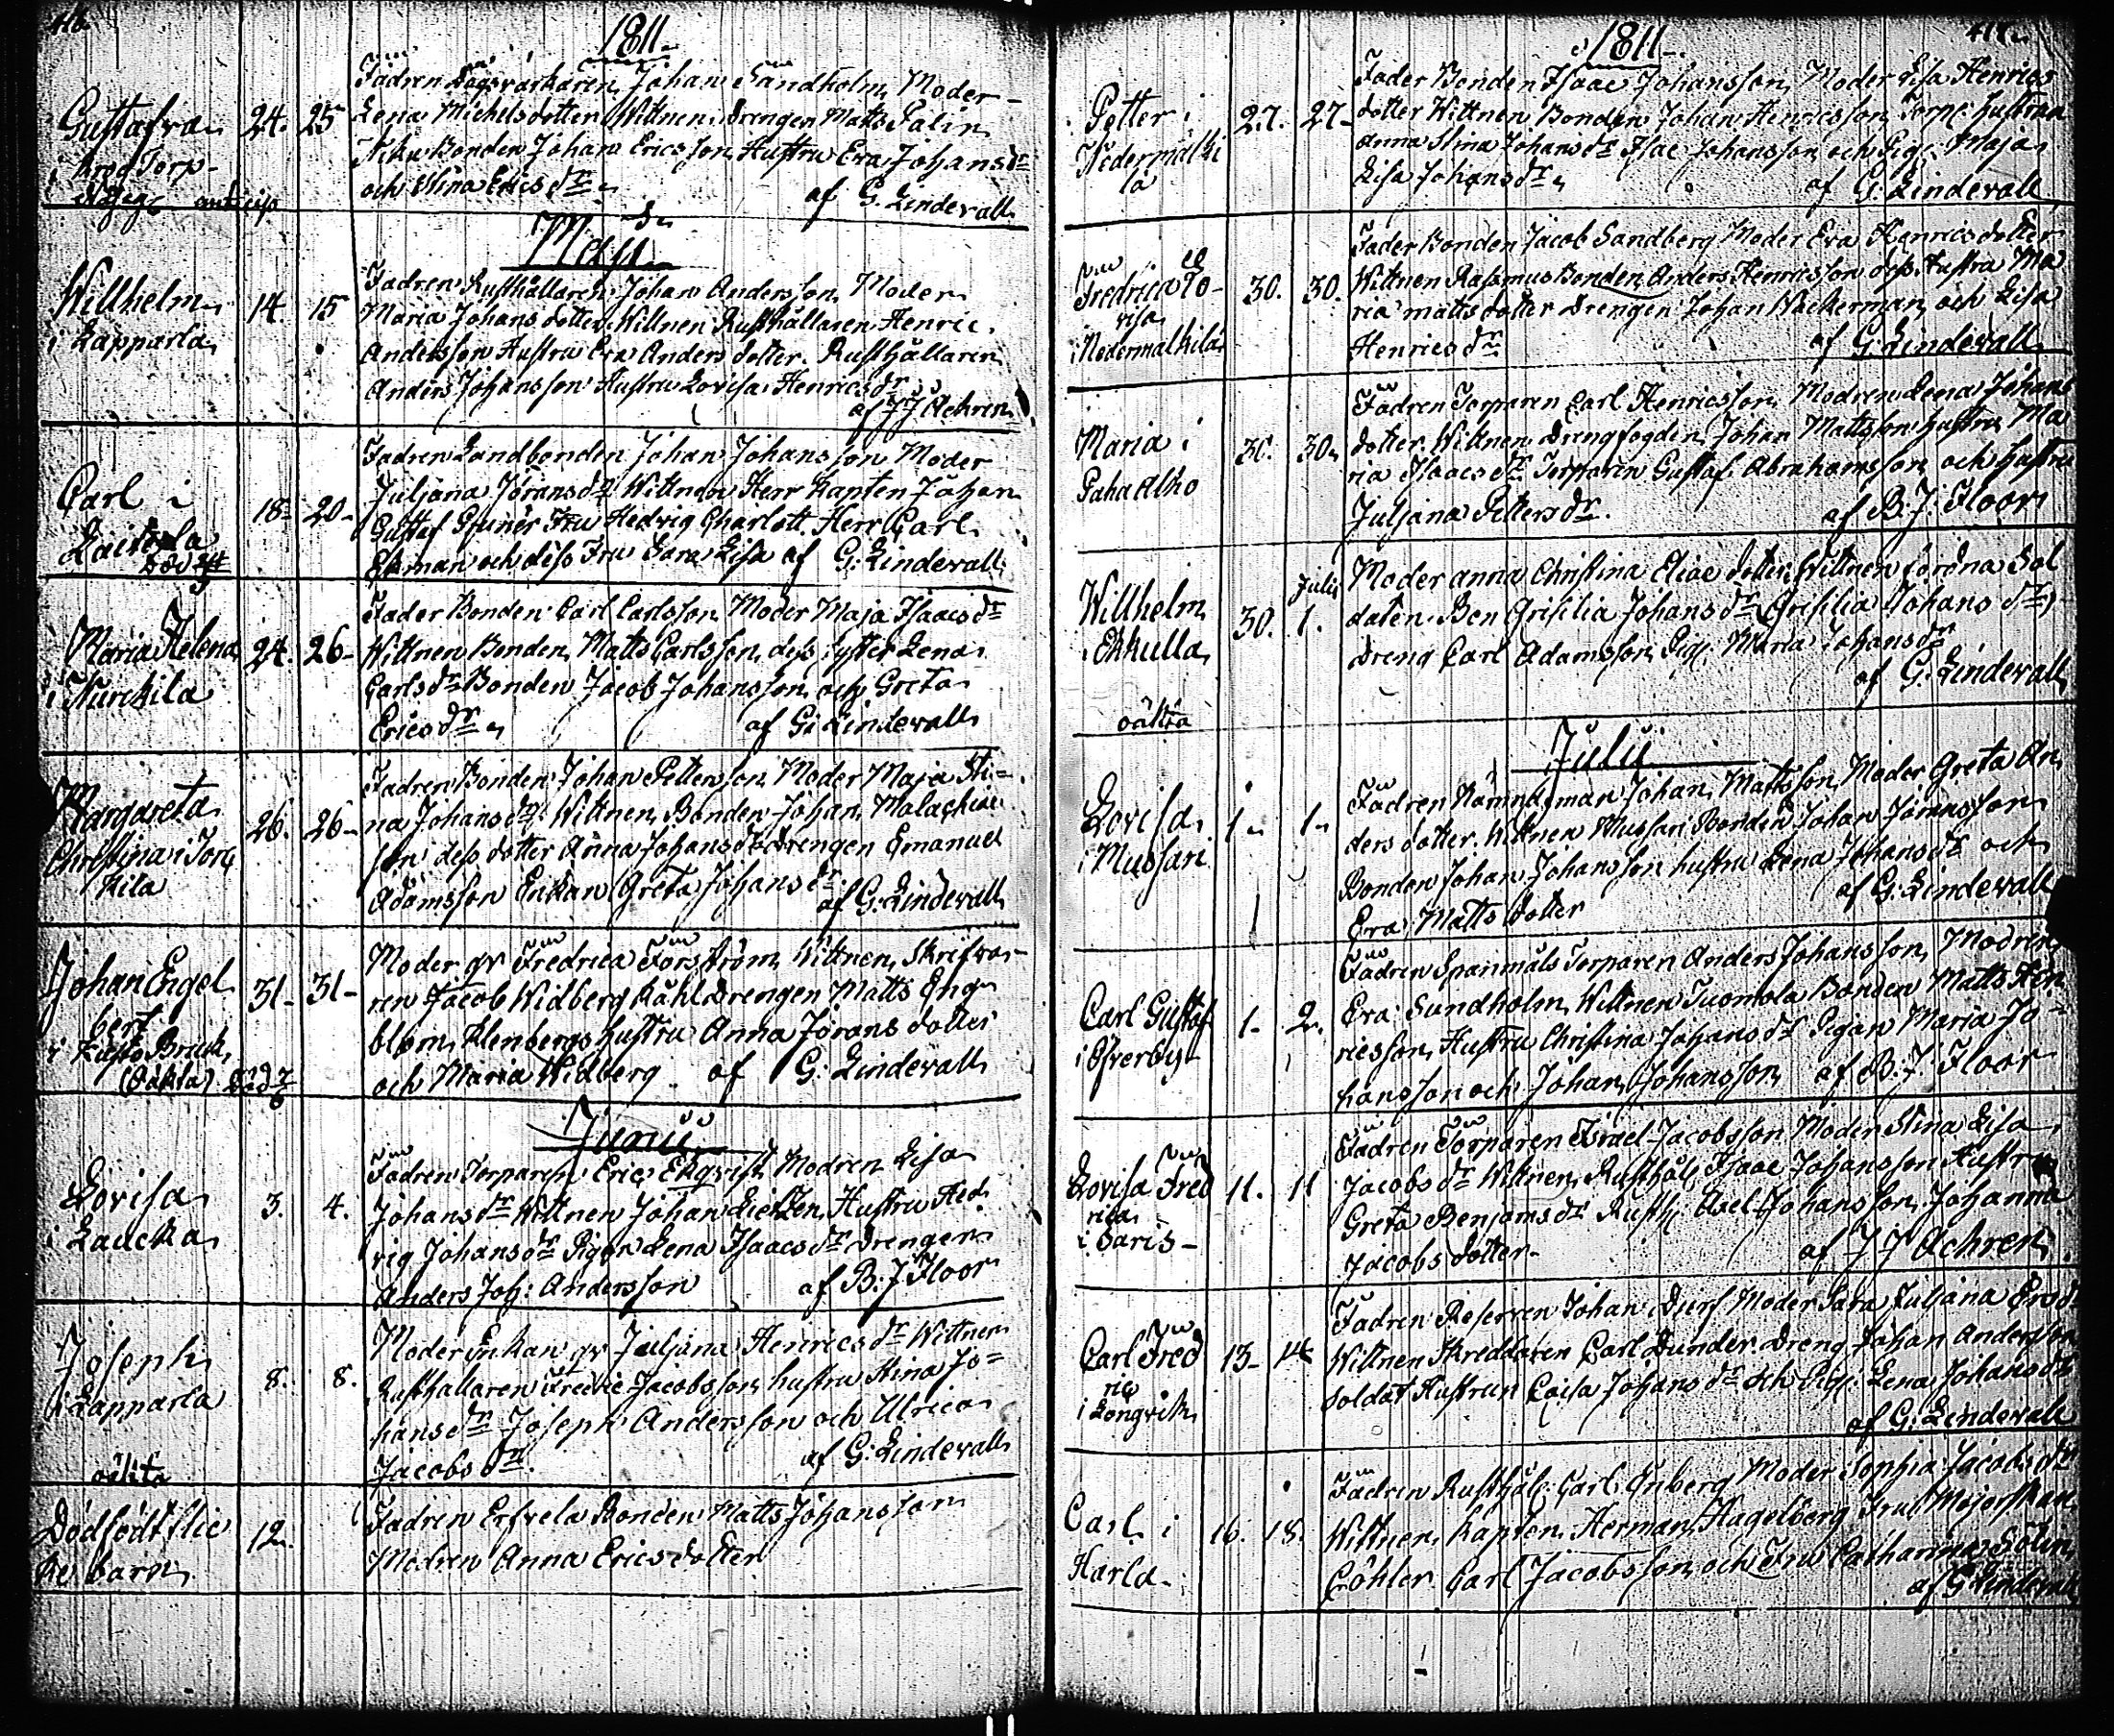 416.
1811.
Gustafva
i Krog Torp
24. 25
Fadren Dagsvärkaren Johan Sandholm, Moder
Lena Michelsdotter Wittnen Drengen Matts Palin
Bonden Johan Ericsson Hustru Eva Johans dr
och Stina Erics dr
af G: Lindevall
Maji
Willhelm
i Lapparla
14. 15
Fadren Rusthållaren Johan Andersson, Moder
Maria Johansdotter, Wittnen Rusthållaren Henric
Andersson Hustru Eva Anders dotter. Rusthållaren
Anders Johansson Hustru Lovisa Henrics dr
af J J Achren
Carl i
Laitela
18- 20-
Fadren Landbonden Johan Johansson Moder
Juljana Jörans dr Wittnen Herr Kapten Johan
Gustaf Fru Hedvig Charlott. Herr Carl
Ekman och dess Fru Sara Lisa af G: Lindevall
Maria Helena
i Kurckila
24. 26-
Fader Bonden Carl Carlsson Moder Maja Isaacs dr
Wittnen Bonden Matts Carlsson, dess syster Lena
Carls dr Bonden Jacob Johansson och Greta
Erics dr
af G: Lindevall
Margareta
Christina i Tor
kila
26. 26-
Fadren Bonden Johan Pettersson Moder Maja Sti=
na Johans dr Wittnen Bonden Johan Malachiæ
son dess dotter Anna Johans dr Drengen Emanuel
Adamsson Enkan Greta Johans dr
af G: Lindevall
Johan Engel
bert
i Kusto Bruk
(Oäkta) Död 7/6
31- 31-
Moder qv Fredrica Forsström, Wittnen, Skrifva
ren Jacob Widberg Kåhldrengen Matts Eng
blom, Klenbergs hustru Anna Jörans dotter
och Maria Widberg af G: Lindevall
Junii
Lovisa
i Laucka
3. 4.
Fadren Torparen Eric Ekqvist, Modren Lisa
Johans dr Wittnen Johan Hustru Hed
vig Johans dr Pigan Lena Isaacs dr Drengen
Anders Joh: Andersson af B: J Floor
Joseph
i Lapparla
oäkta
8. 8.
Moder Enkan qv Juljana Henrics dr Wittnen
Rusthållaren Fredric Jacobsson hustru Stina Jo=
hans dr Joseph Andersson och Ulrica
Jacobs dr
af G: Lindevall
Dödfödt flic
ke barn
12.
Fadren Erfvela Bonden Matts Johansson
Modren Anna Erics dotter
417.
1811.
Petter i
Nedermälki
lä
27. 27-
Fader Bonden Isaac Johansson, Moder Lisa Henrics
dotter Wittnen Bonden Johan Henricsson, Torp: hustrun
Anna Stina Johans dr Isac Johansson och Pig: Maja
Lisa Johans dr
af G: Lindevall
Fredrica Lo-
visa
i Nedermälkilä
30. 30.
Fader Bonden Jacob Sandberg Moder Eva Henricsdotter
Wittnen Rassmus Bonden Anders Henricsson dess Hustru Ma
ria matts dotter Drengen Johan Wackerman och Lisa
Henrics dr
af G: Lindevall
Maria i
Pahaalho
30. 30
Fadren Torparen Carl Henricsson, Modren Lena Johans
dotter. Wittnen, Drengfogden Johan Mattsson hustru Ma
ria Isaacs dr Torparen Gustaf Abrahamsson och hustru
Juljana Petters dr.
af B: J: Floor
Willhelm
i Ekkulla
oäkta
30. Julii 1.
Moder Anna Christina Eliae dotter, Wittnen förödna Sol
daten Ben Grisilia Johans dr (Grisilia Johans dr)
Dreng Carl Adamsson, Pig: Maria Johans dr
af G: Lindevall
Julii
Lovisa
i Mussari
1. 1.
Fadren Nämndeman Johan Mattsson, Moder Greta An
ders dotter. Wittnen Mussari Bonden Johan Jöransson
Bonden Johan Johansson hustru Lena Johans dr och
Eva Matts dotter
af G: Lindevall
Carl Gustaf
i Öfverby
1. 2.
Fadren Spanmåls Torparen Anders Johansson, Modren
Eva Sundholm, Wittnen Tuomola Bonden Matts Hen
ricsson, Hustru Christina Johans dr Pigan Maria Jo
hansson och Johan Johansson af B: J: Floor
Lovisa Fred
rica
i Saris-
11. 11
Fadren Torparen Israel Jacobsson Moder Stina Lisa
Jacobs dr Wittnen, Rusthåll: Isaac Johansson Hustru
Greta Benjams dr Rusth: Axel Johansson, Johanna
Jacobs dotter
af J J Achren
Carl Fred
ric
i Longvik
13- 14
Fadren Reserven Johan Djerf Moder Sara Juljana Ers dr
Wittnen Skreddaren Carl Dunder Dreng Johan Andersson
Soldat Hustrun Caisa Johans dr och Pig: Lena Johans dr
af G: Lindevall
Carl i
Harla.
16. 18.
Fadren Rusthåll: Carl Enberg Moder Sophia Jacobs dr
Wittnen, Kapten Herman Hagelberg Frul Mejerskan
Cöhler Carl Jacobsson och Fru Catharina Bolin
af G Lindevall